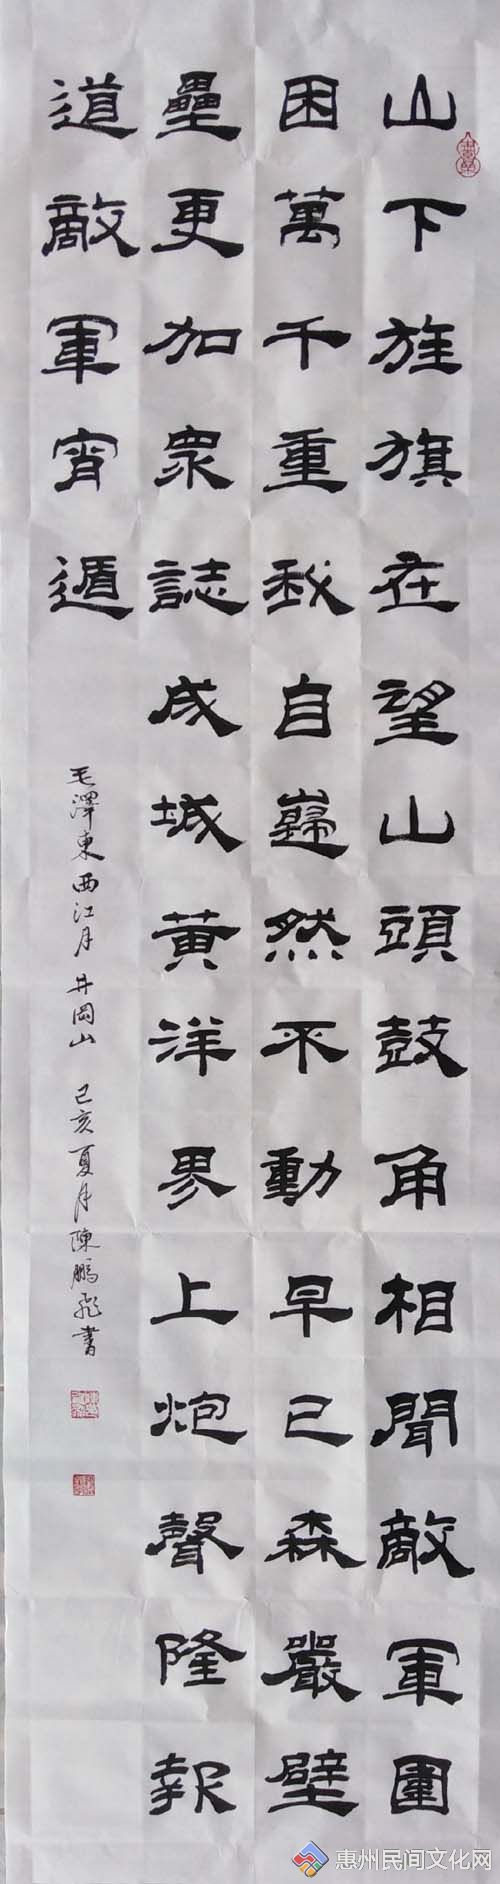 山下旌旗在望山頭鼓角相聞敵軍圍
困萬千重我自巋然不動早已森嚴壁
壘更加衆誌成城黃洋界上炮聲隆報
道敵軍宵遁
毛澤東西江月井岡山 己亥夏月陳鵬飛書
惠州民间文化网